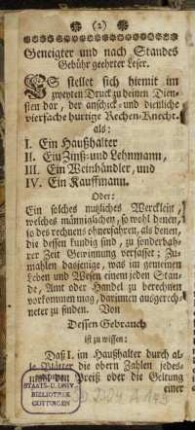 (2)
Geneigter und nach Standes
Gebühr geehrter Leser.
ES stellet sich hiemit im
zweyten Druck zu deinen Dien-
sten dar, der anschick- und dienliche
vierfache hurtige Rechen-Knecht.
als:
I. Ein Haußhalter
II. Ein Zinß- und Lehnmann,
III. Ein Weinhändler, und
IV. Ein Kauffmann.
Oder:
Ein solches nutzliches Wercklein,
welches männiglichen, so wohl denen,
so des rechnens ohnerfahren, als denen,
die dessen kundig sind, zu sonderbah-
rer Zeit Gewinnung verfasset; Zu-
mahlen dasjenige, was im gemeinen
Leben und Wesen einem jeden Stan-
de, Amt oder Handel zu berechnen
vorkommen mag, darinnen ausgerech-
net zu finden. Von
Dessen Gebrauch
ist zu wissen:
Daß I. im Haußhalter durch al-
le Blätter die obern Zahlen jedes-
mahl den Preiß oder die Geltung
einer
STAATS- U. UNIV.
BIBLIOTHEK
GÖTTINGEN